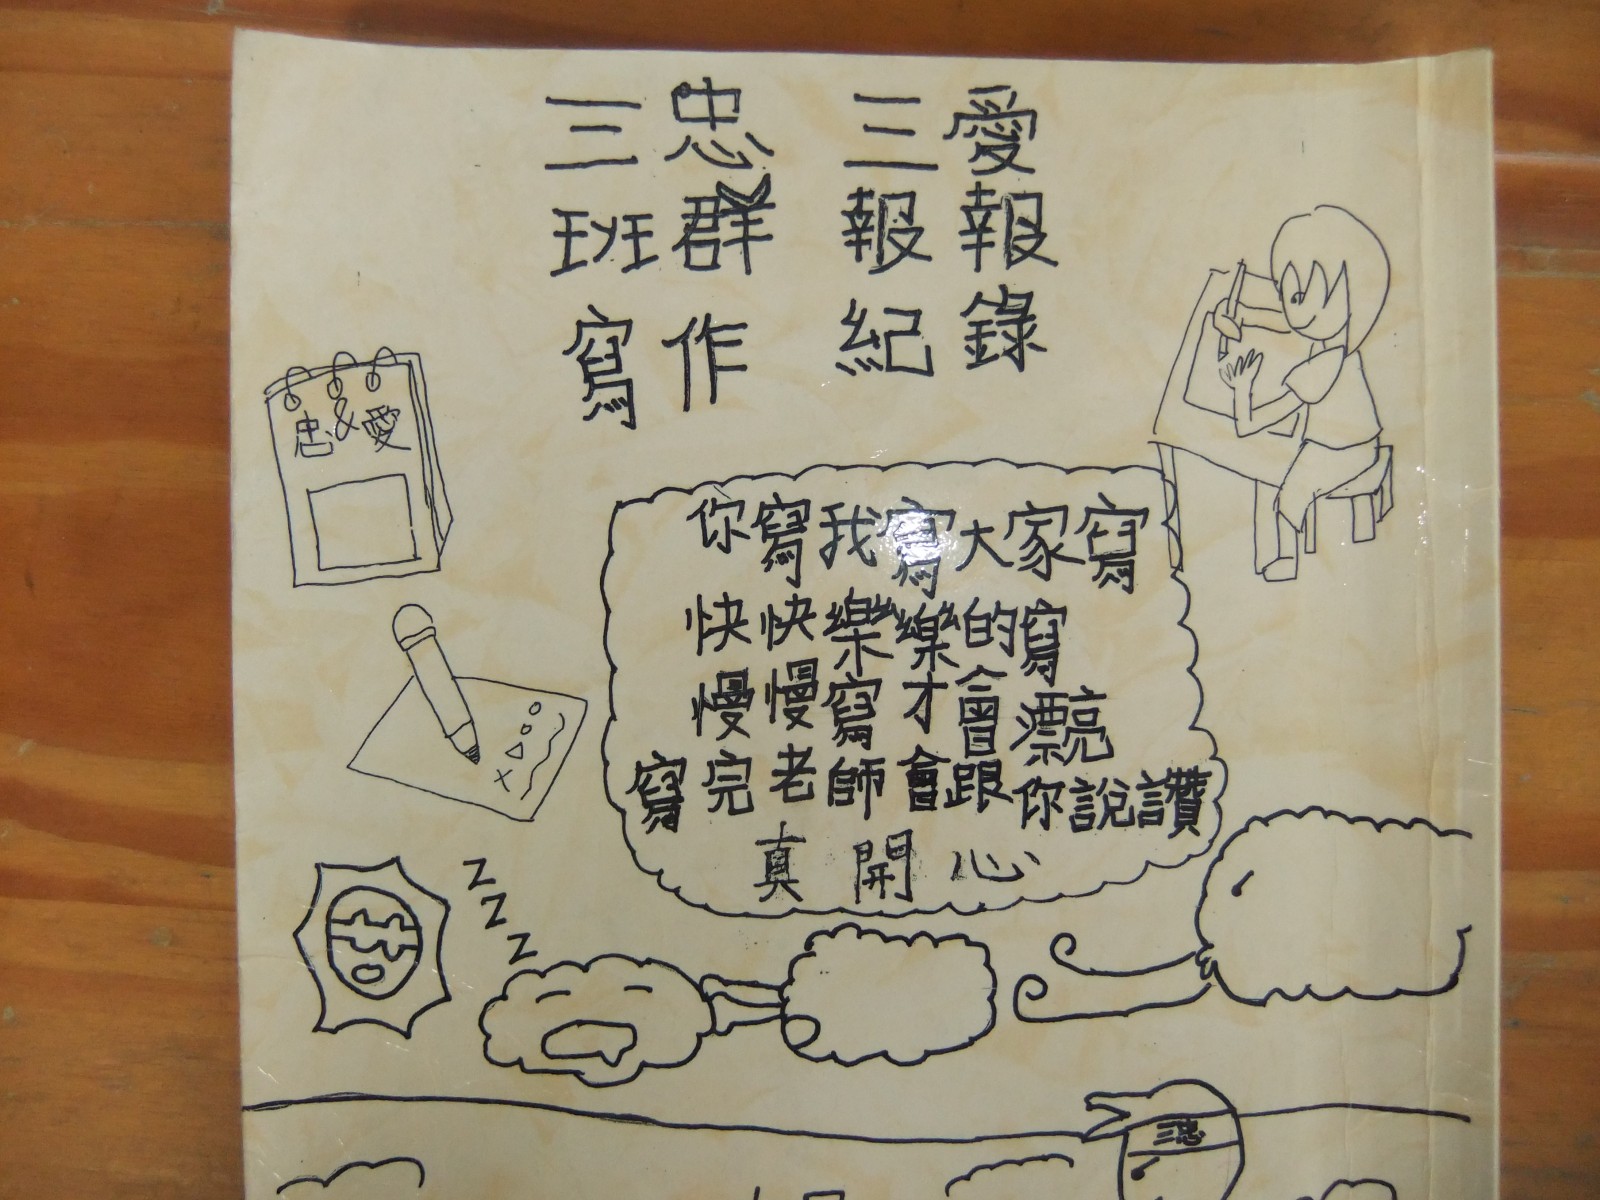 三忠 三愛
班群 報報
寫作 紀錄
忠&愛
你寫我寫大家寫
快快樂樂的寫
慢慢寫才會漂亮
寫完老師會跟你說讚
真開心
Z
Z
Z
三忠